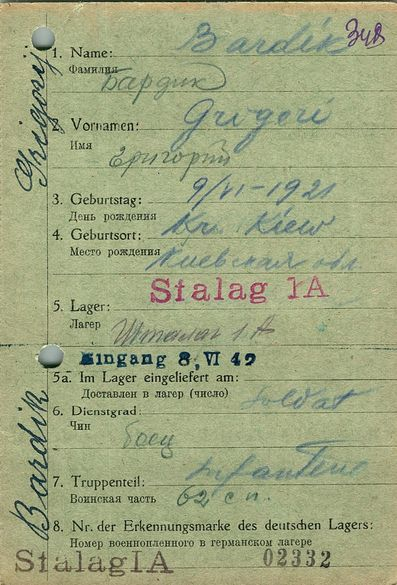 Bardik
348
1. Name:
Фамилия
Бардик
Grigorij
2. Vornamen:
Grigori
Имя
Григорий
3. Geburtstag:
9/VI-1921
День рождения
4. Geburtsort:
Kr. Kiew
Место рождения
Киевская обл
Stalag IA
5. Lager:
Лагер
Шталаг 1. А
Eingang 8, VI 42
5a. Im Lager eingeliefert am:
Доставлен в лагер (число)
6. Dienstgrad:
Soldat
Чин
боец
Bardik
7. Truppenteil:
Infanterie
Воинская часть
62 с п.
8. Nr. der Erkennungsmarke des deutschen Lagers:
Номер военнопленного в германском лагере
Stalag IA
02332